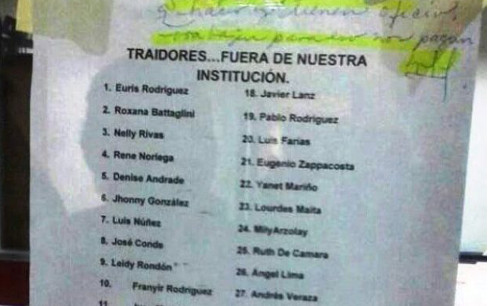 TRAIDORES...FUERA DE NUESTRA
INSTITUCIÓN.
1. Euris Rodríguez
2. Roxana Battaglini
3. Nelly Rivas
4. Rene Noriega
5. Denise Andrade
6. Jhonny González
7. Luis Núñez
8. José Conde
9. Leidy Rondón
10. Franyir Rodríguez
11.
18. Javier Lanz
19. Pablo Rodríguez
20. Luis Farias
21. Eugenio Zappacosta
22. Yanet Mariño
23. Lourdes Maita
24. MilyArzolay
25. Ruth De Camara
26. Angel Lima
27. Andrés Veraza